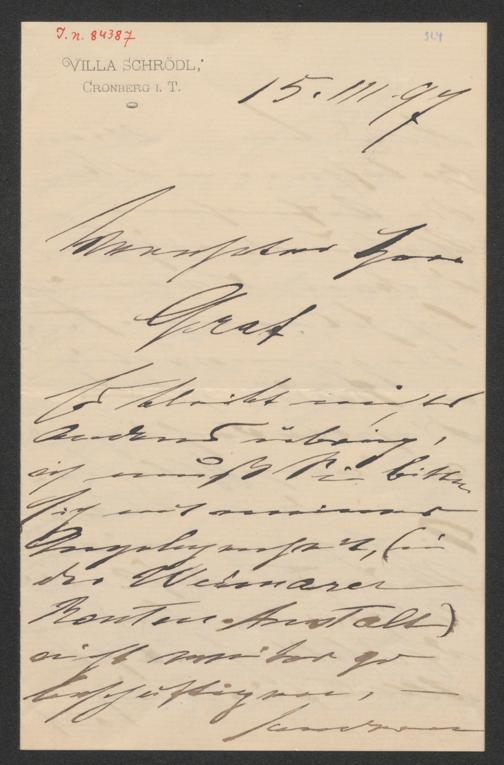 I. n. 84387
VILLA SCHRÖDL,
CRONBERG I. T.
15. III 97
Verehrter Herr
Graf.
Es bleibt nichts
anders übrig,
ich muß Sie bitten
sich mit meiner
Angelegenheit, (in
der Weimarer
Renten-Anstalt)
nicht weiter zu
beschäftigen, –
sondern